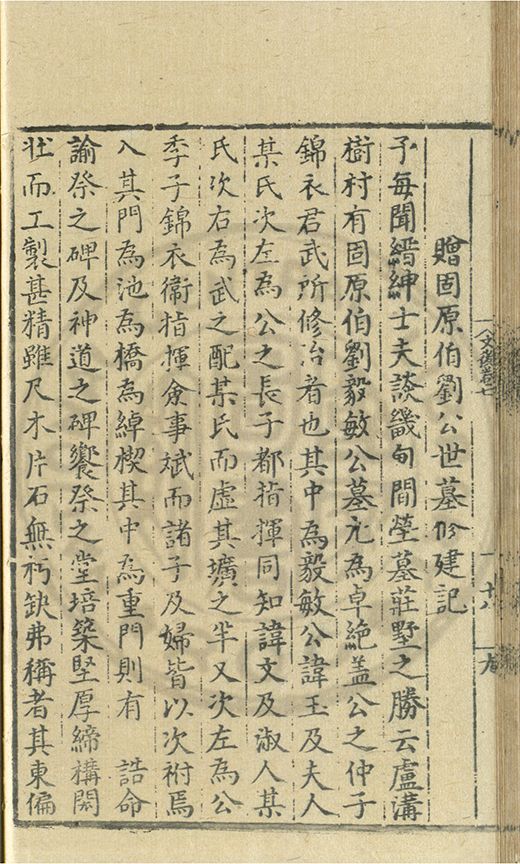 文後卷七
十八
贈固原伯劉公世墓修建記
予每聞縉紳士夫談畿甸間塋墓莊墅之勝云盧溝
樹村有固原伯劉毅敏公墓尤為卓絶盖公之仲子
錦衣君武所修治者也其中為毅敏公諱玉及夫人
某氏次左為公之長子都指揮同知諱文及淑人某
氏次右為武之配某氏而虛其壙之半又次左為公
季子錦衣衛指揮僉事斌而諸子及婦皆以次祔焉
入其門為池為橋為綽楔其中為重門則有　誥命
諭祭之碑及神道之碑饗祭之堂培築堅厚締構閎
壯而工製甚精雖尺木片石無朽缺弗稱者其東偏